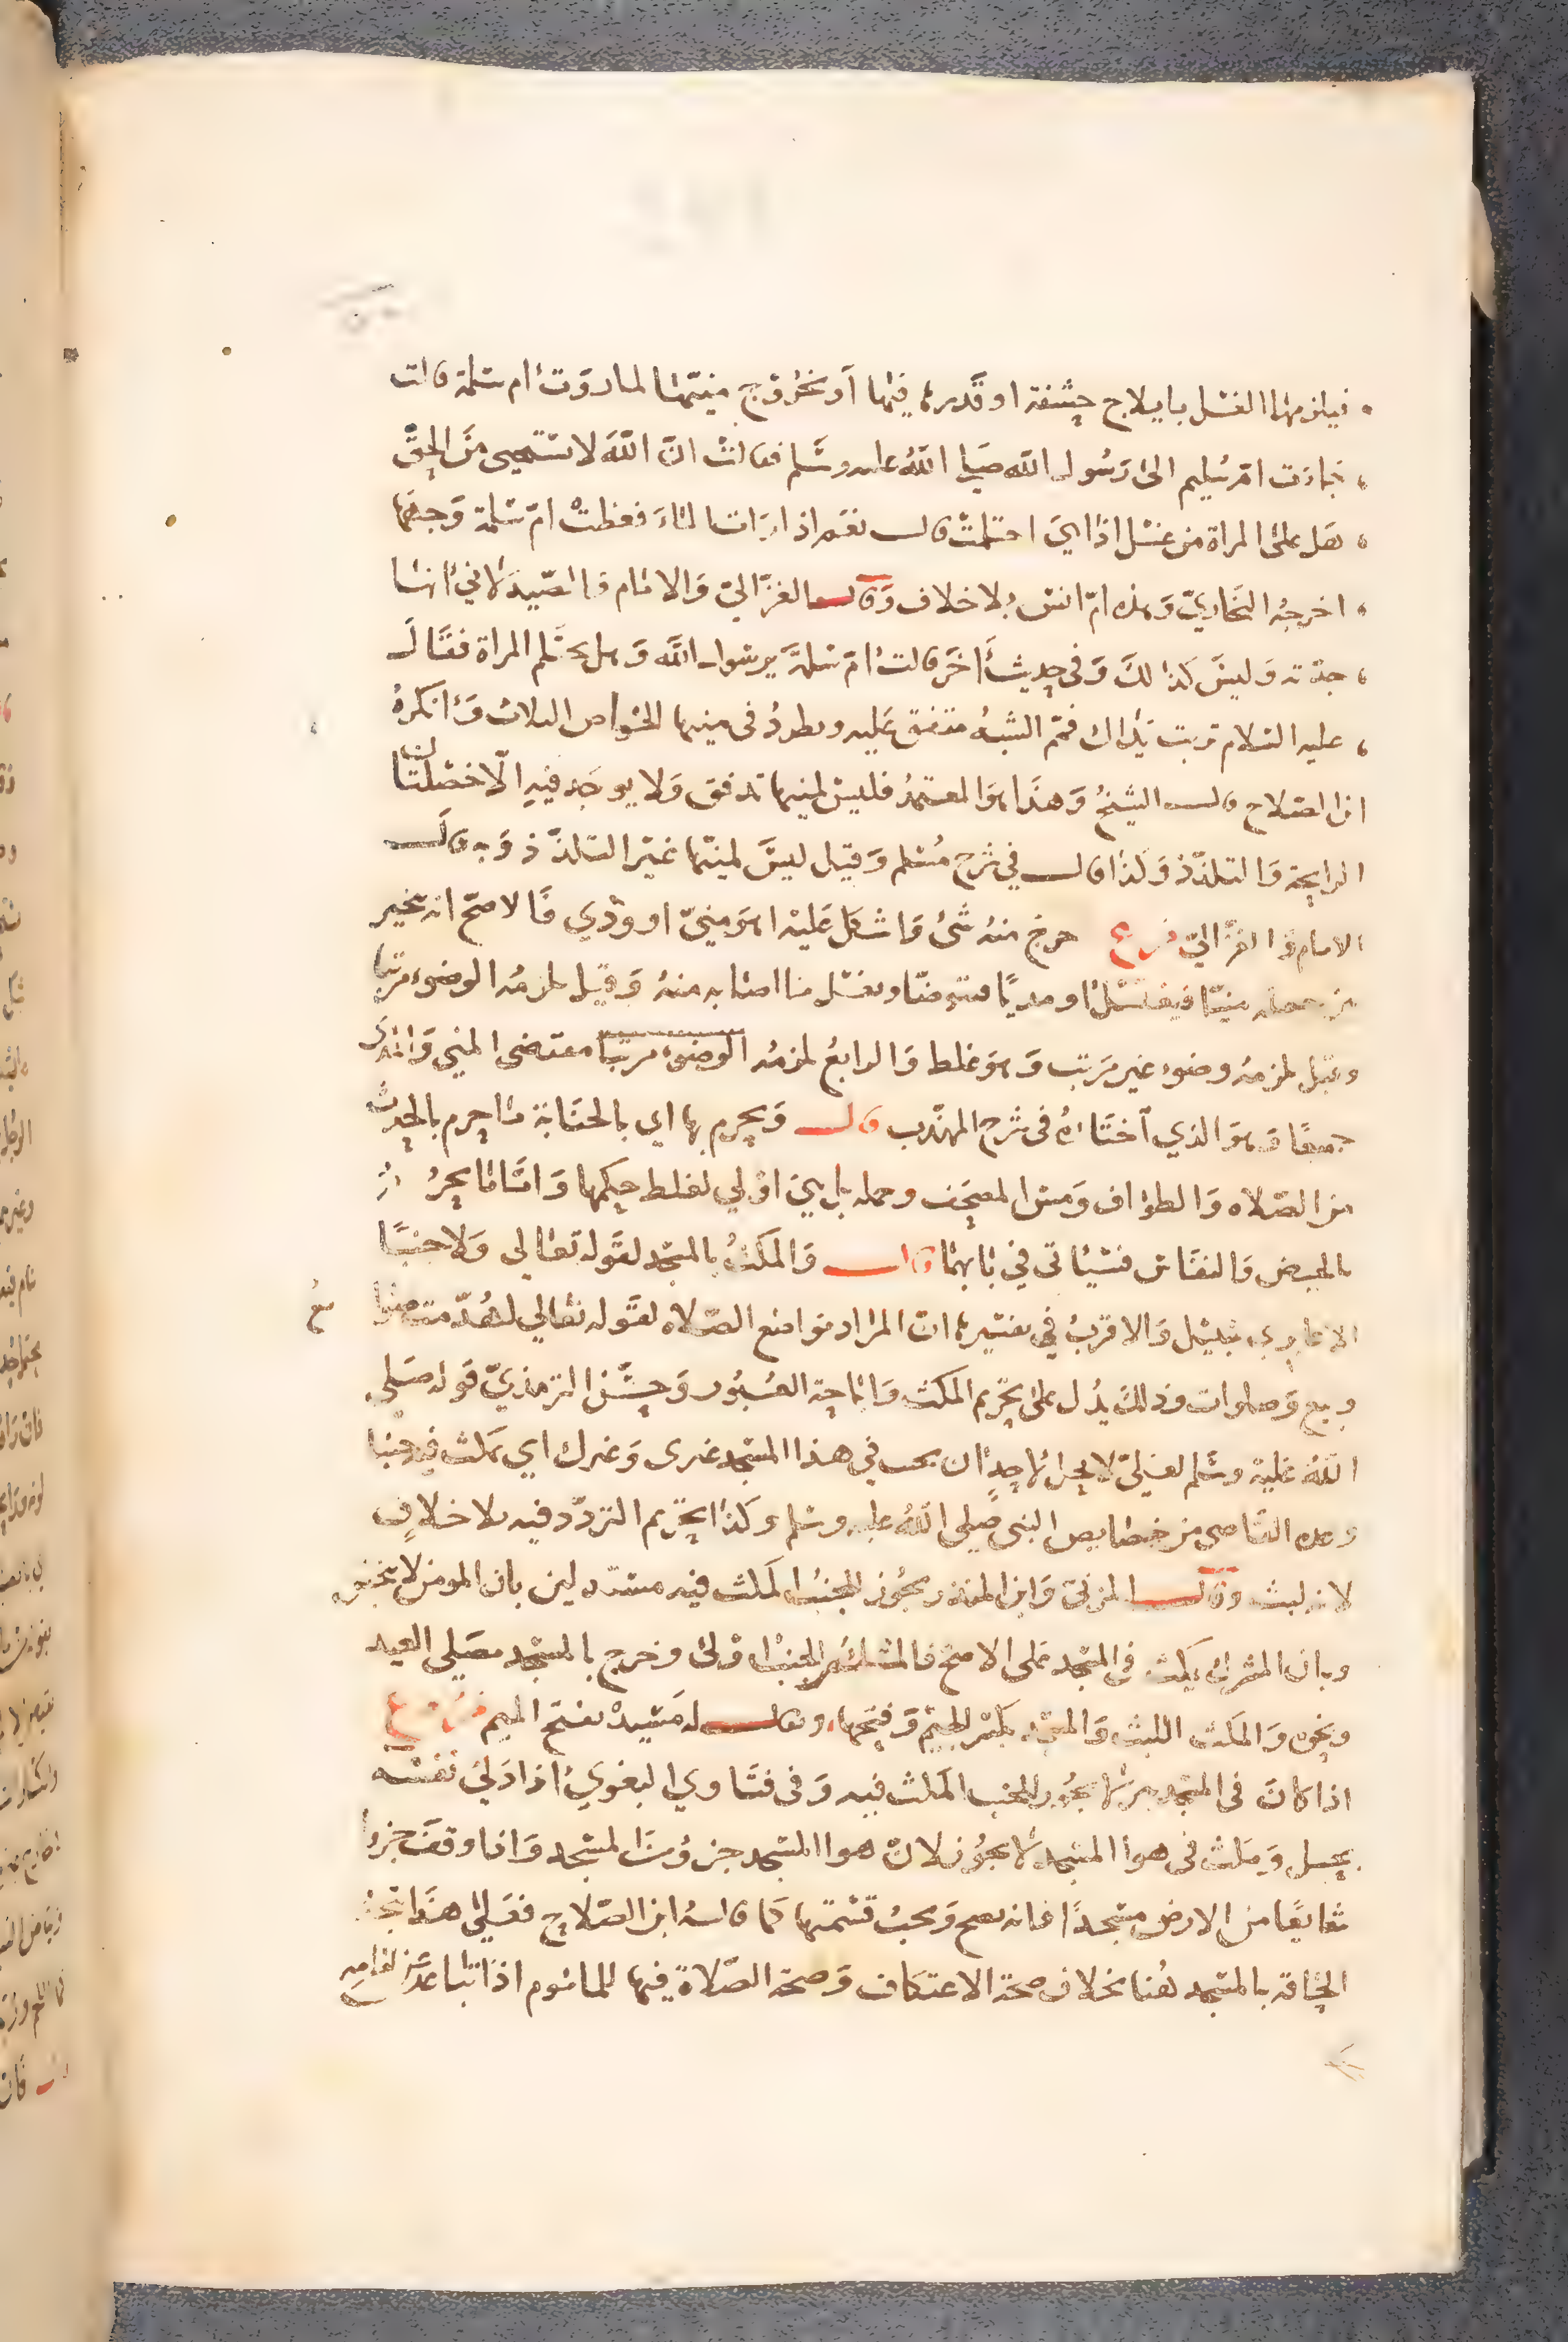 فيلزمها الغسل بايلاج حشفة او قدرها فيها او بخروج منيها لما روت ام سلمة قالت
جاءت ام سليم الى رسول الله صلى الله عليه وسلم فقالت ان الله لا يستحيى من الحق
هل على المراة من غسل اذا هي احتلمت قال نعم اذا رات الماء فغطت ام سلمة وجهها
اخرجه البخاري وهذه ام انس بلا خلاف وقال الغزالي والامام والصيدلاني انها
جدته وليس كذلك وفي حديث اخر قالت ام سلمة يرسول الله وهل تحتلم المراة فقال
عليه السلام تربت يداك فمم الشبه متفق عليه ويطرد في منيها الخواص الثلاث وانكره
ابن الصلاح قال الشيخ وهذا هو المعتمد فليس لمنيها تدفق ولا يوجد فيه الا خصلتان
الرايحة والتلذذ وكذا قال في شرح مسلم وقيل ليس لمنيها غير التلذذ وبه قال
الامام والغزالي فرع خرج منه شئ واشكل عليه اهو مني او ودي فالاصح انه يتخير
بين جعله منيا فيغتسل او مديا فيتوضا ويغسل ما اصابه منه وقيل يلزمه الوضوء مرتبا
وقيل يلزمه وضوء غير مرتب وهو غلط والرابع يلزمه الوضوء مرتبا مقتضى المني والمذى
جميعا وهو الذي اختاره في شرح المهذب قال ويحرم بها اي بالجنابة ما حرم بالحدث
من الصلاه والطواف ومس المصحف وحمله بل هي اولي لغلظ حكمها واما ما يحرم
بالحيض والنفاس فسياتي في بابهما قال والمكث بالمسجد لقوله تعالي ولا جنبا
الا عابري سبيل والاقرب في تفسيره ان المراد مواضع الصلاه لقوله تعالي لهدمت صوامع
وبيع وصلوات وذلك يدل على تحريم المكث واباحة العبور وحسن الترمذي قوله صلى
الله عليه وسلم لعلي لا يحل لاحد ان يجنب في هذا المسجد غيرى وغيرك اي يمكث فيه جنبا
وعده القاضي من خصايص النبي صلى الله عليه وسلم وكذا يحرم التردد فيه بلا خلاف
لانه لبث وقال المزني وابن المنذر يجوز للجنب المكث فيه مستدلين بان المومن لا ينجس
وبان المشرك يمكث في المسجد على الاصح فالمسلم الجنب اولى وخرج بالمسجد مصلي العيد
ونحوه والمكث اللبث والمسجد بكسر الجيم وفتحها ويقال له مسيد بفتح الميم فرع
اذا كان في المسجد لا يجوز للجنب المكث فيه وفي فتاوي البغوي اذا دلى نفسه
بحبل ومكث في هوا المسجد لا يجوز لان هوا المسجد جزؤ من المسجد واذا وقف جزءا
شايعا من الارض مسجدا فانه يصح ويجب قسمتها كما قاله ابن الصلاح فعلى هذا يتجه
الحاقه بالمسجد هنا بخلاف صحة الاعتكاف وصحة الصلاة فيها للماموم اذا تباعد عن امامه